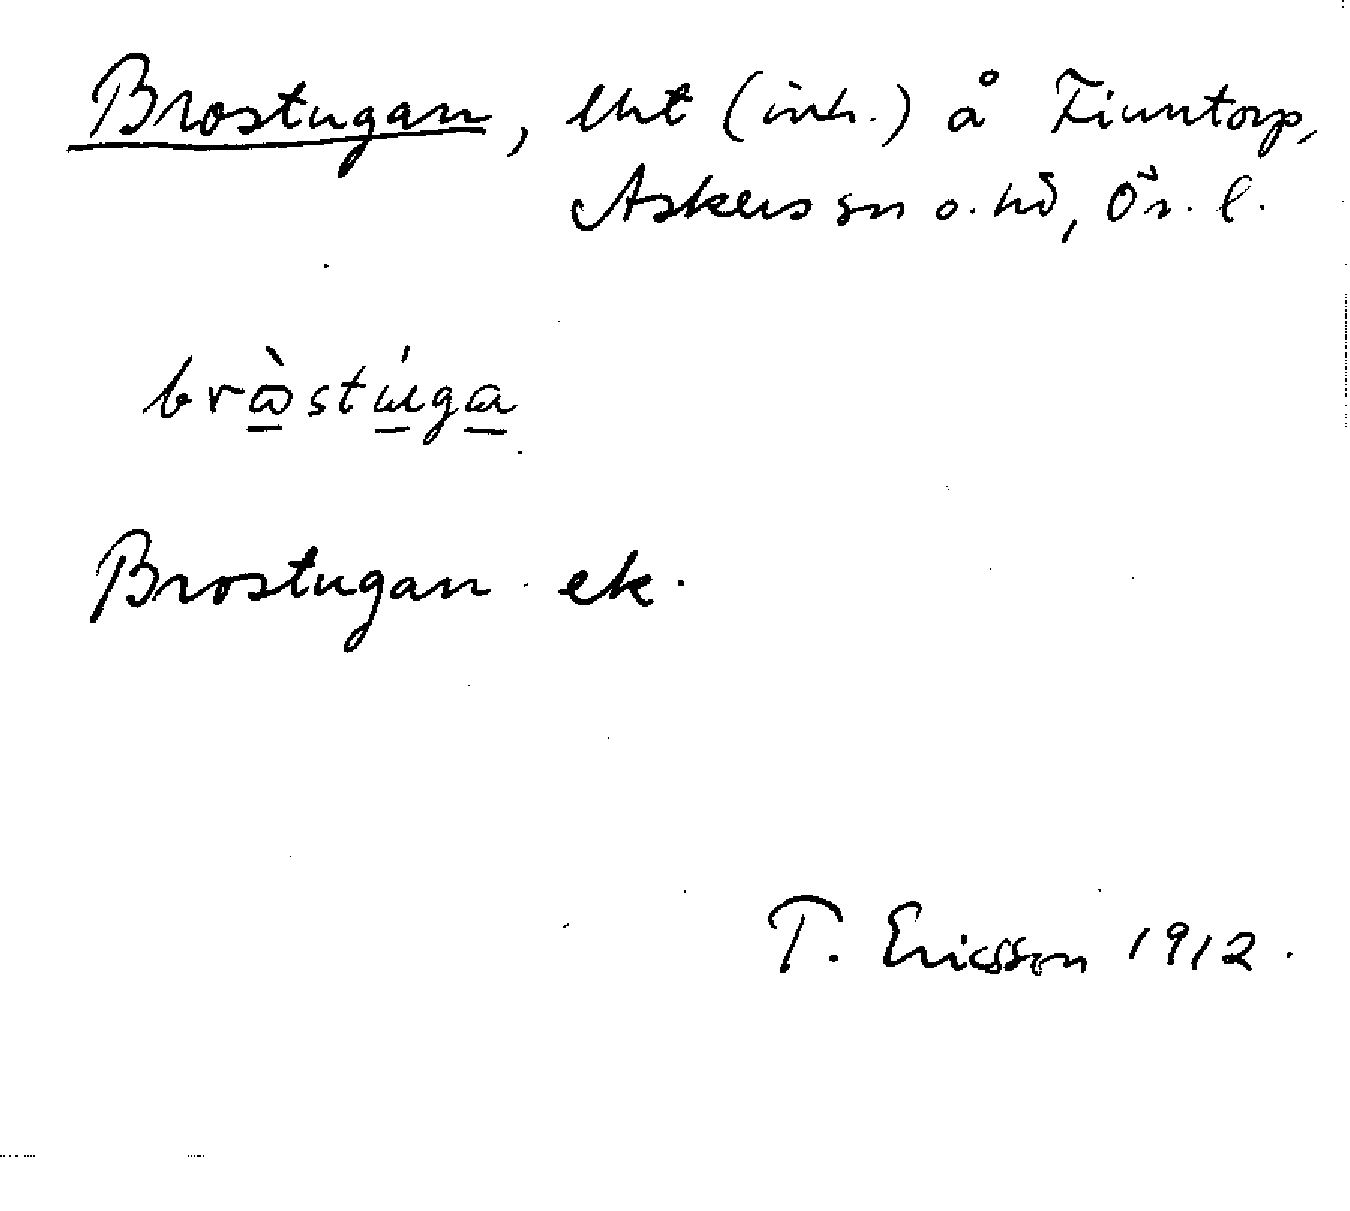 Brostugan, lht (inh.) å Finntorp,
Askers sn o. hd, Ör. l.
Brostugan ek.
T. Ericsson 1912.